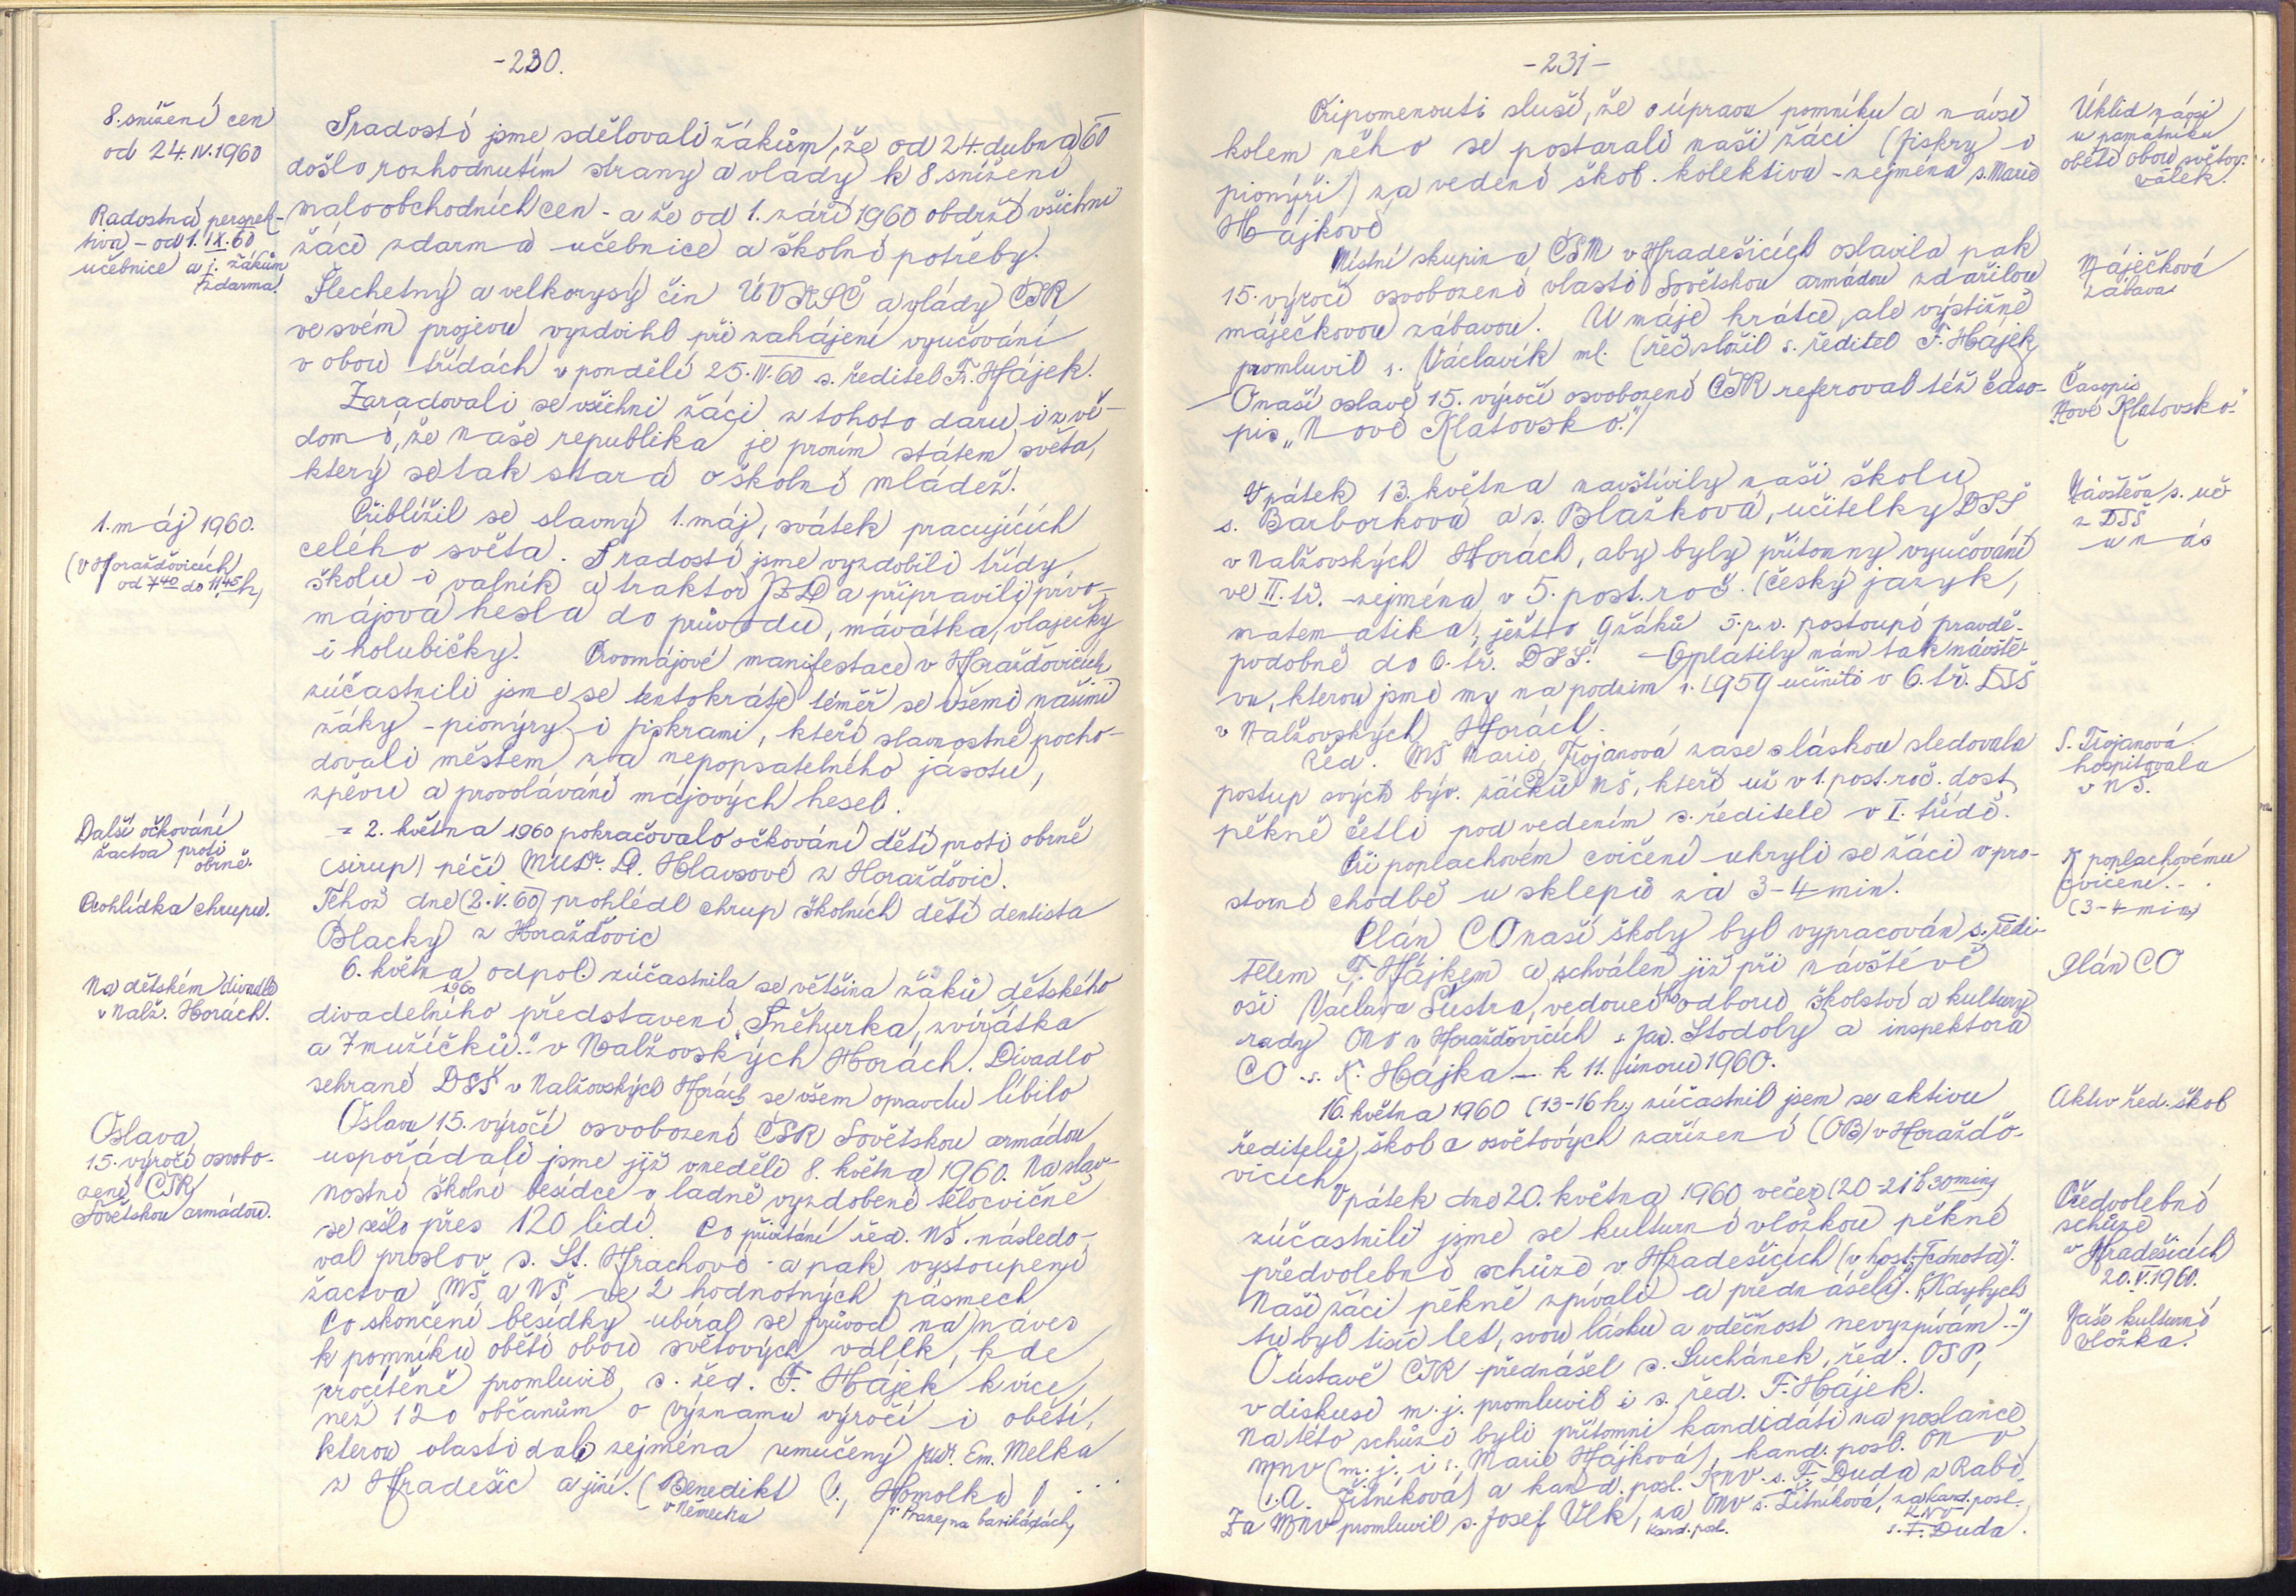 -230.
8. snížení cen
od 24.IV.1960
S radostí jsme sdělovali žákům, že od 24. dubna 60
došlo rozhodnutím strany a vlády k 8. snížení
maloobchodních cen - a že od 1. září 1960 obdrží všichni
žáci zdarma učebnice a školní potřeby.
Radostná perspek-
tiva - od 1. IX. 60
učebnice a j. žákům
zdarma!
Šlechetný a velkorysý čin ÚV KSČ a vlády ČSR
ve svém projevu vyzdvihl při zahájení vyučování
v obou třídách v pondělí 25.IV.60 s. ředitel Fr. Hájek.
Zaradovali se všichni žáci z tohoto daru i z vě-
domí, že naše republika je prvním státem světa,
který se tak stará o školní mládež.
1. máj 1960.
(v Horažďovicích
od 7⁴⁰ do 11⁴⁵ h)
Přiblížil se slavný 1. máj, svátek pracujících
celého světa. S radostí jsme vyzdobili třídy
školu i valník a traktor JZD a připravili prvo-
májová hesla do průvodu, mávátka, vlaječky
i holubičky. Prvomájové manifestace v Horažďovicích
zúčastnili jsme se tentokráte téměř se všemi našimi
žáky - pionýry i jiskrami, kteří slavnostně pocho-
dovali městem za nepopsatelného jásotu,
zpěvu a provolávání májových hesel.
Další očkování
žactva proti
obrně.
= 2. května 1960 pokračovalo očkování dětí proti obrně
(sirup) péčí MUDr. Hlavsové z Horažďovic.
Prohlídka chrupu.
Téhož dne (2.V.60) prohlédl chrup školních dětí dentista
Blacký z Horažďovic
Na dětském divadle
v Nalž. Horách.
6. května 1960 odpol. zúčastnila se většina žáků dětského
divadelního představení „Sněhurka, zvířátka
a 7 mužíčků." v Nalžovských Horách. Divadlo
sehrané DSŠ v Nalžovských Horách se všem opravdu líbilo
Oslava
15. výročí osvobo-
zení ČSR
Sovětskou armádou.
Oslavu 15. výročí osvobození ČSR Sovětskou armádou
uspořádali jsme již v neděli 8. května 1960. Na slav-
nostní školní besídce v ladně vyzdobené tělocvičně
se sešlo přes 120 lidí. Po přivítání řed. NŠ. následo-
val proslov s. St. Hrachové - a pak vystoupení
žactva MŠ a NŠ ve 2 hodnotných pásmech
Po skončení besídky ubíral se průvod na náves
k pomníku obětí obou světových válek, kde
procítěně promluvil s. řed. F. Hájek k více
než 120 občanům o významu výročí i obětí,
kterou vlasti dali zejména umučený Em. Melka
z Hradešic a jiní. (Benedikt V., Homolka J. ..
v Německu v Praze na barikádách)
-231-
Připomenouti sluší, že o úpravu pomníku a návsi
kolem něho se postarali naši žáci (jiskry i
pionýři) za vedení škol. kolektivu - zejména s. Marie
Hájkové
Úklid návsi
u památníku
obětí obou světov.
válek.
Místní skupina ČSM v Hradešicích oslavila pak
15. výročí osvobození vlasti Sovětskou armádou zdařilou
máječkovou zábavou. U máje krátce, ale výstižně
promluvil s. Václavík ml. (řeč složil s. ředitel F. Hájek
Máječková
zábava
O naší oslavě 15. výročí osvobození ČSR referoval též časo-
pis „Nové Klatovsko."
Časopis
„Nové Klatovsko."
V pátek 13. května navštívily naši školu
s. Barborková a s. Blažková, učitelky DSŠ
v Nalžovských Horách, aby byly přítomny vyučování
ve II. tř. - zejména v 5. post. roč. (český jazyk,
matematika, ježto 9 žáků 5. p. r. postoupí pravdě-
podobně do 6. tř. DSŠ. - Oplatily nám tak návště-
vu, kterou jsme my na podzim r. 1959 učinili v 6. tř. DSŠ
v Nalžovských Horách.
Návštěva s. uč.
z DSŠ
u nás
Řed. MŠ Marie Trojanová zase s láskou sledovala
postup svých býv. žáčků MŠ, kteří už v 1. post. roč. dost
pěkně četli pod vedením s. ředitele v I. třídě.
S. Trojanová
hospitovala
v NŠ.
Při poplachovém cvičení ukryli se žáci v pro-
storné chodbě u sklepů za 3-4 min.
K poplachovému
cvičení. -
(3-4 min)
Plán CO naší školy byl vypracován s. ředi-
telem F. Hájkem a schválen již při návštěvě
oši Václava Šustra, vedoucího odboru školství a kultury
rady ONV v Horažďovicích s. Jar. Stodoly a inspektora
CO s. K. Hájka - k 11. únoru 1960.
Plán CO
16. května 1960 (13-16 h.) zúčastnil jsem se aktivu
ředitelů škol a osvětových zařízení (OB) v Horažďo-
vicích
Aktiv řed. škol
V pátek dne 20. května 1960 večer (20-21 h 30 min)
zúčastnili jsme se kulturní vložkou pěkné
předvolební schůze v Hradešicích (v host. „Jednota").
Naši žáci pěkně zpívali a přednášeli. („Kdybych
tu byl tisíc let, svou lásku a vděčnost nevyzpívám..")
Předvolební
schůze
v Hradešicích
20.V.1960.
Naše kulturní
vložka.
O ústavě ČSR přednášel s. Suchánek, řed. OSP,
v diskusi m. j. promluvil i s. řed. F. Hájek.
Na této schůzi byli přítomni kandidáti na poslance
MNV (m. j. i s. Marie Hájková), kand. posl. ONV
(s. A. Žitníková) a kand. posl. KNV s. F. Duda z Rabí.
Za MNV promluvil s. Josef Vlk, za ONV s. Žitníková, za kand. posl.
kand. posl. KNV
s. F. Duda.